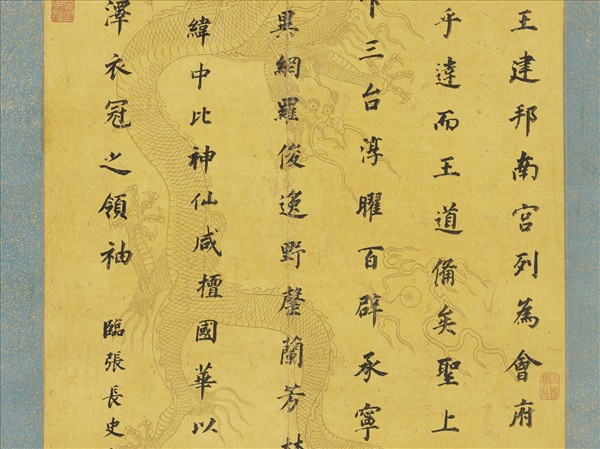 王建邦南宮列為會府
乎達而王道備矣聖上
三台淳曜百辟承寧
異網羅俊逸野罄蘭芳林
緯中比神仙咸擅國華以
澤衣冠之領袖
臨張長史